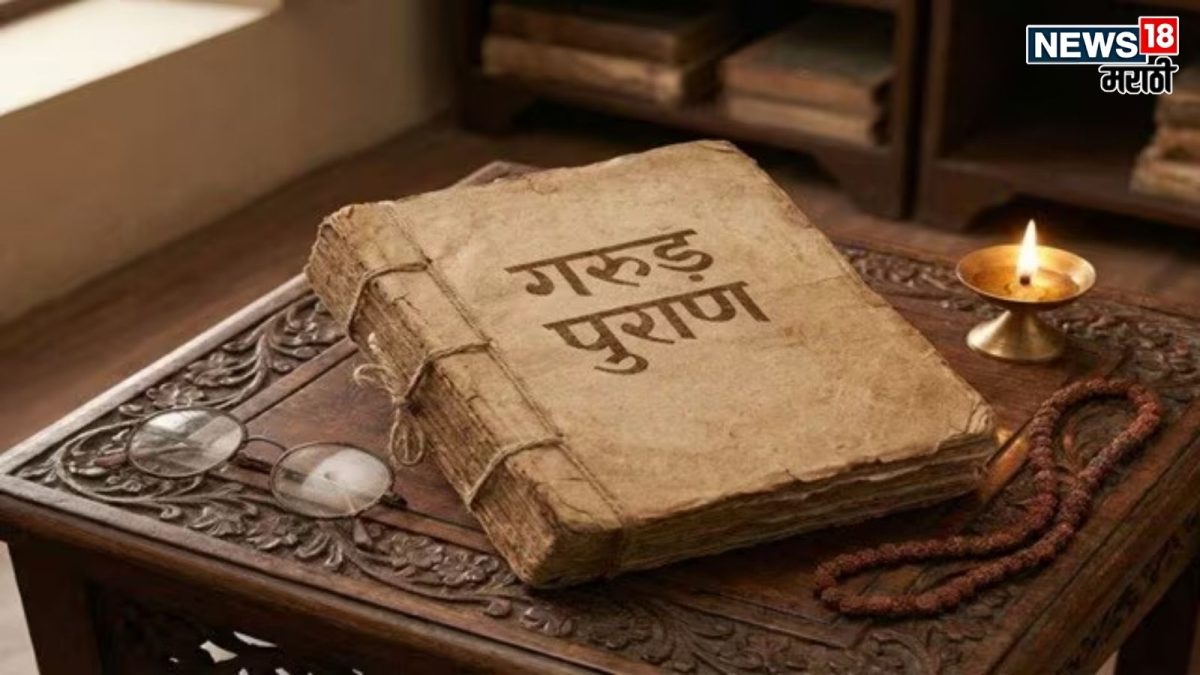 NEWS18
मराठी
गरुड़
पुराण